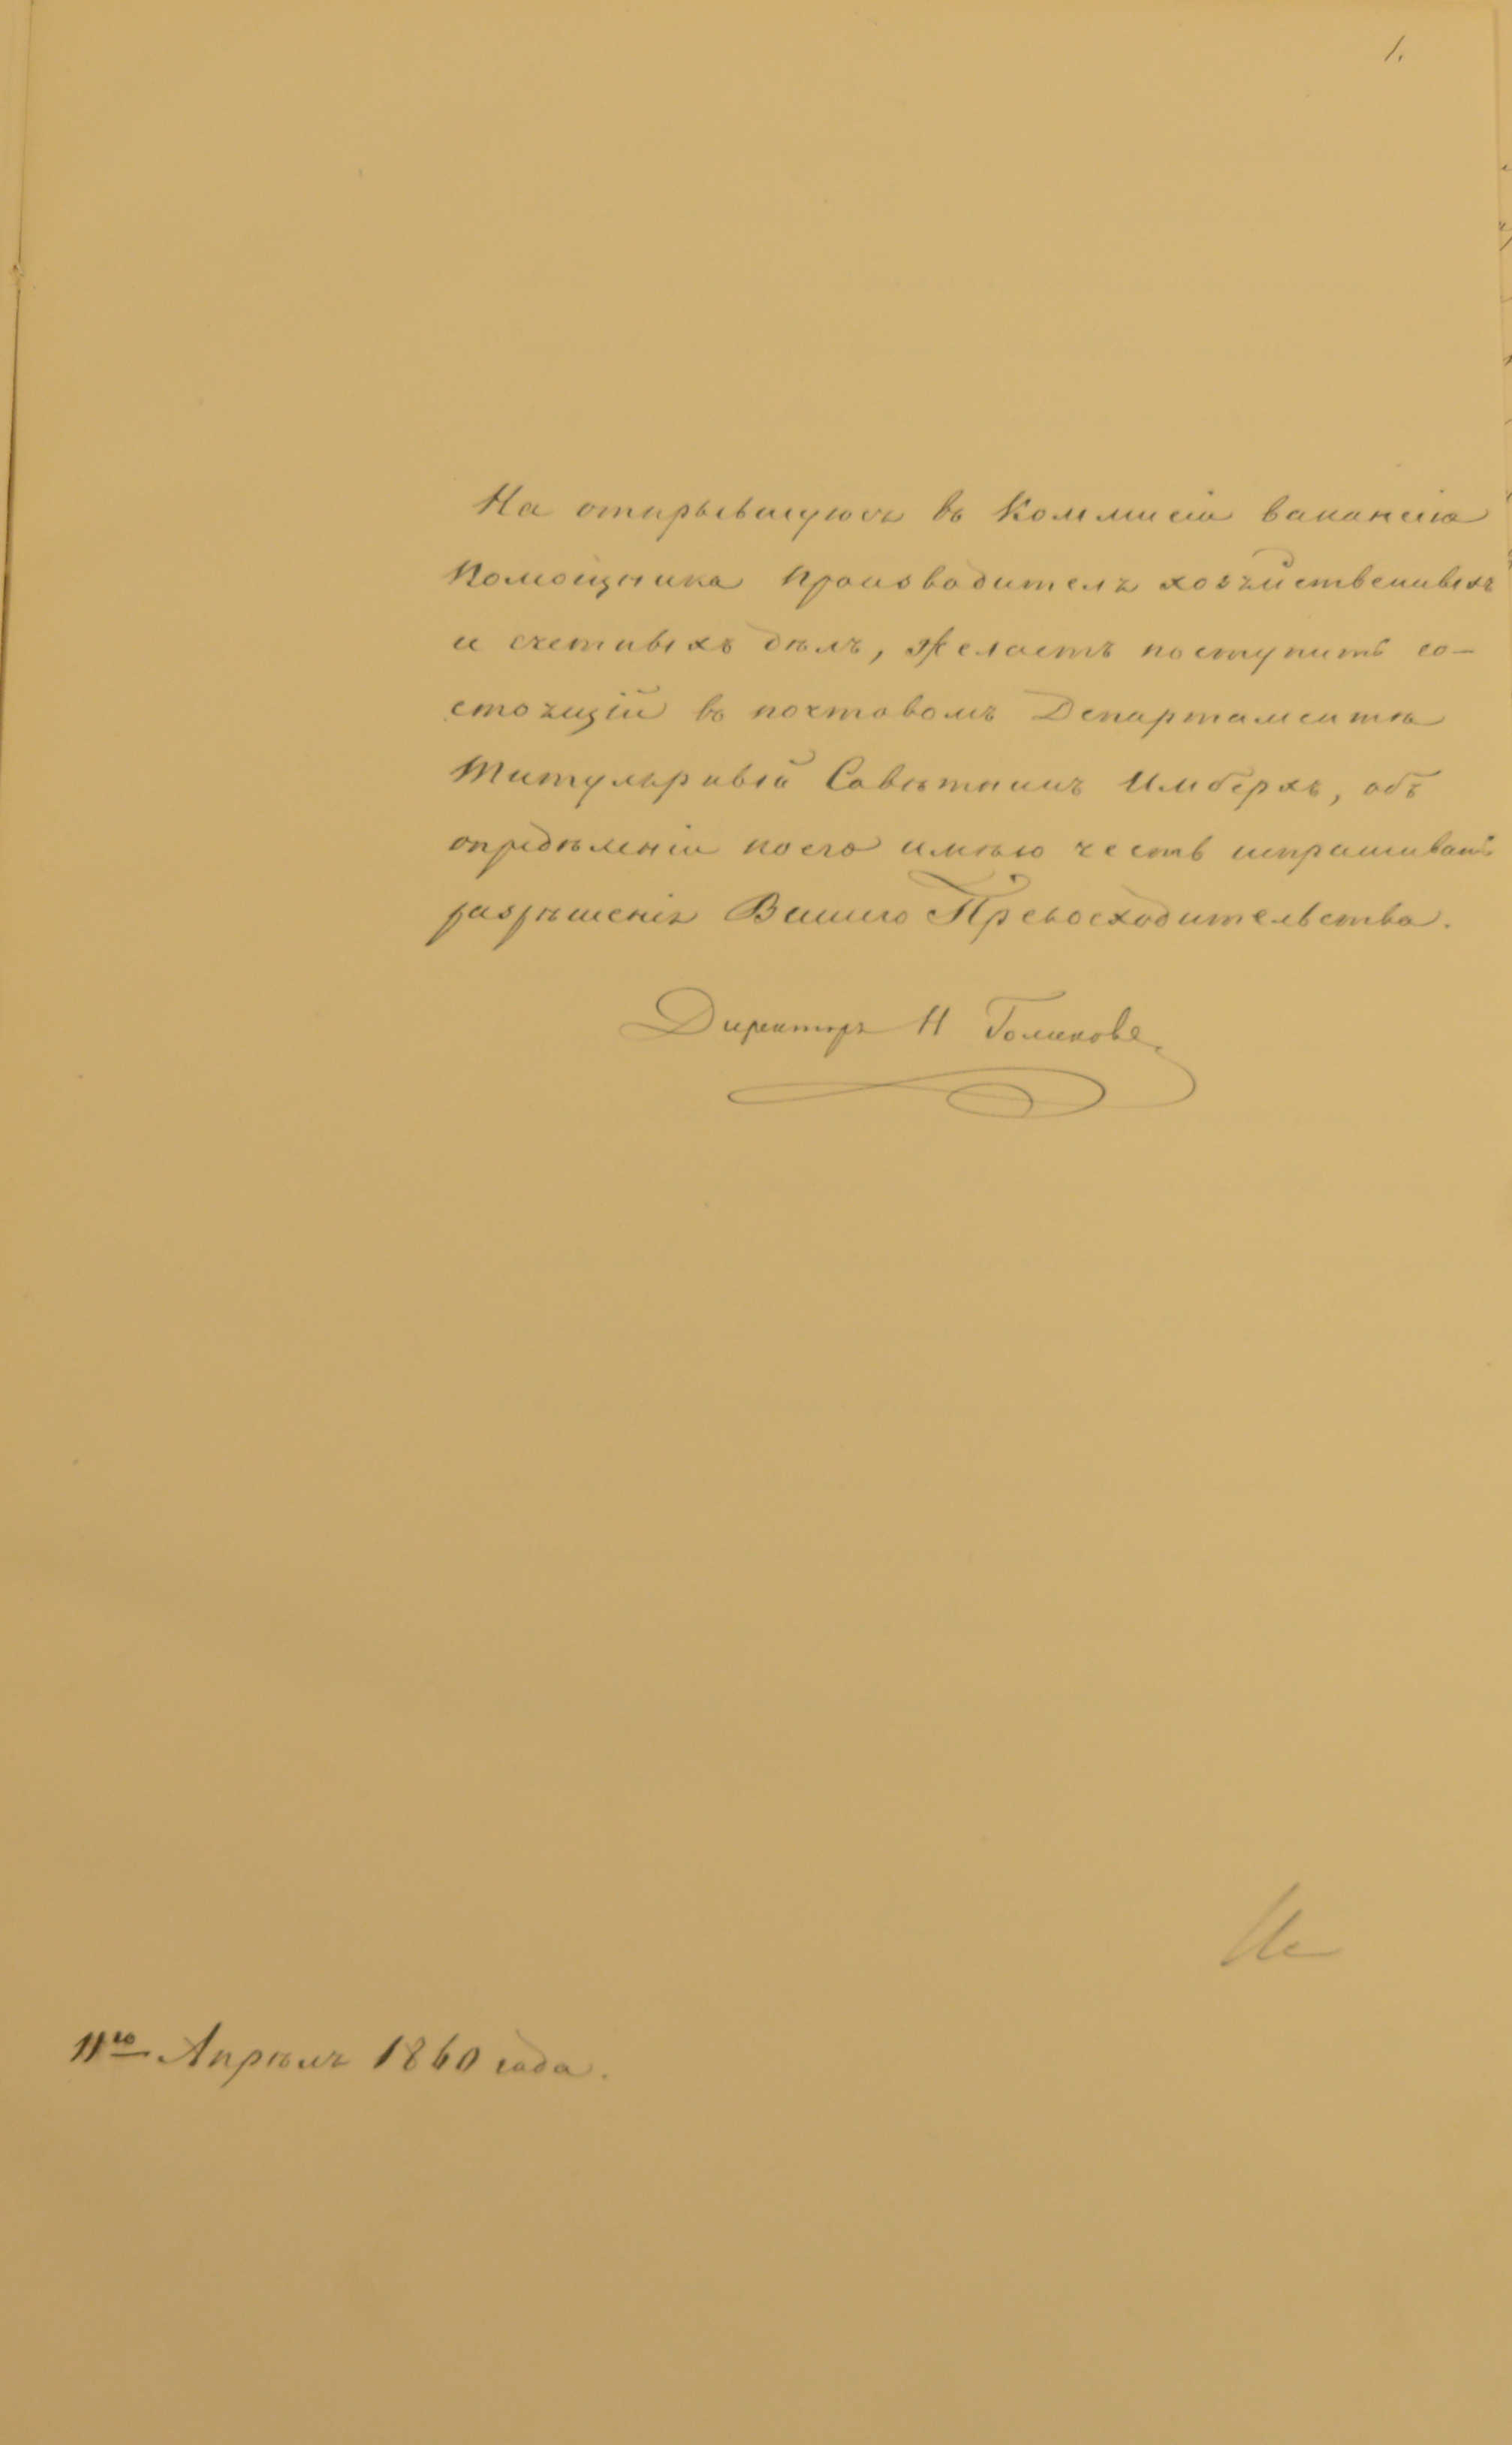 1.
На открывшуюся въ Коммисіи вакансію
Помощника Производителя хозяйственныхъ
и счетныхъ дѣлъ, желаетъ поступить со-
стоящій въ почтовомъ Департаментѣ
Титулярный Совѣтникъ Имберхъ, объ
опредѣленіи коего имѣю честь испрашивать
разрѣшенія Вашего Превосходительства.
Директоръ Н Голиковъ
11го Апрѣля 1860 года.